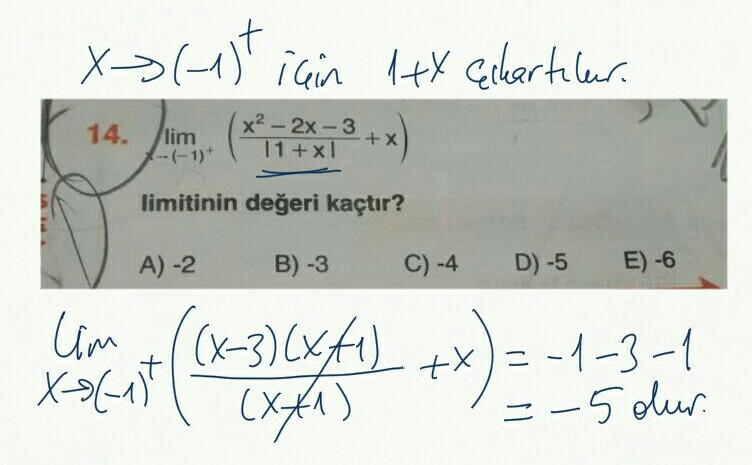 x→(-1)⁺ için 1+x çıkartılır.
14. lim x→(-1)⁺ ( (x² - 2x - 3) / |1 + x| + x )
limitinin değeri kaçtır?
A) -2 B) -3 C) -4 D) -5 E) -6
lim x→(-1)⁺ ( (x-3)(x+1) / (x+1) + x ) = -1-3-1
= -5 olur.